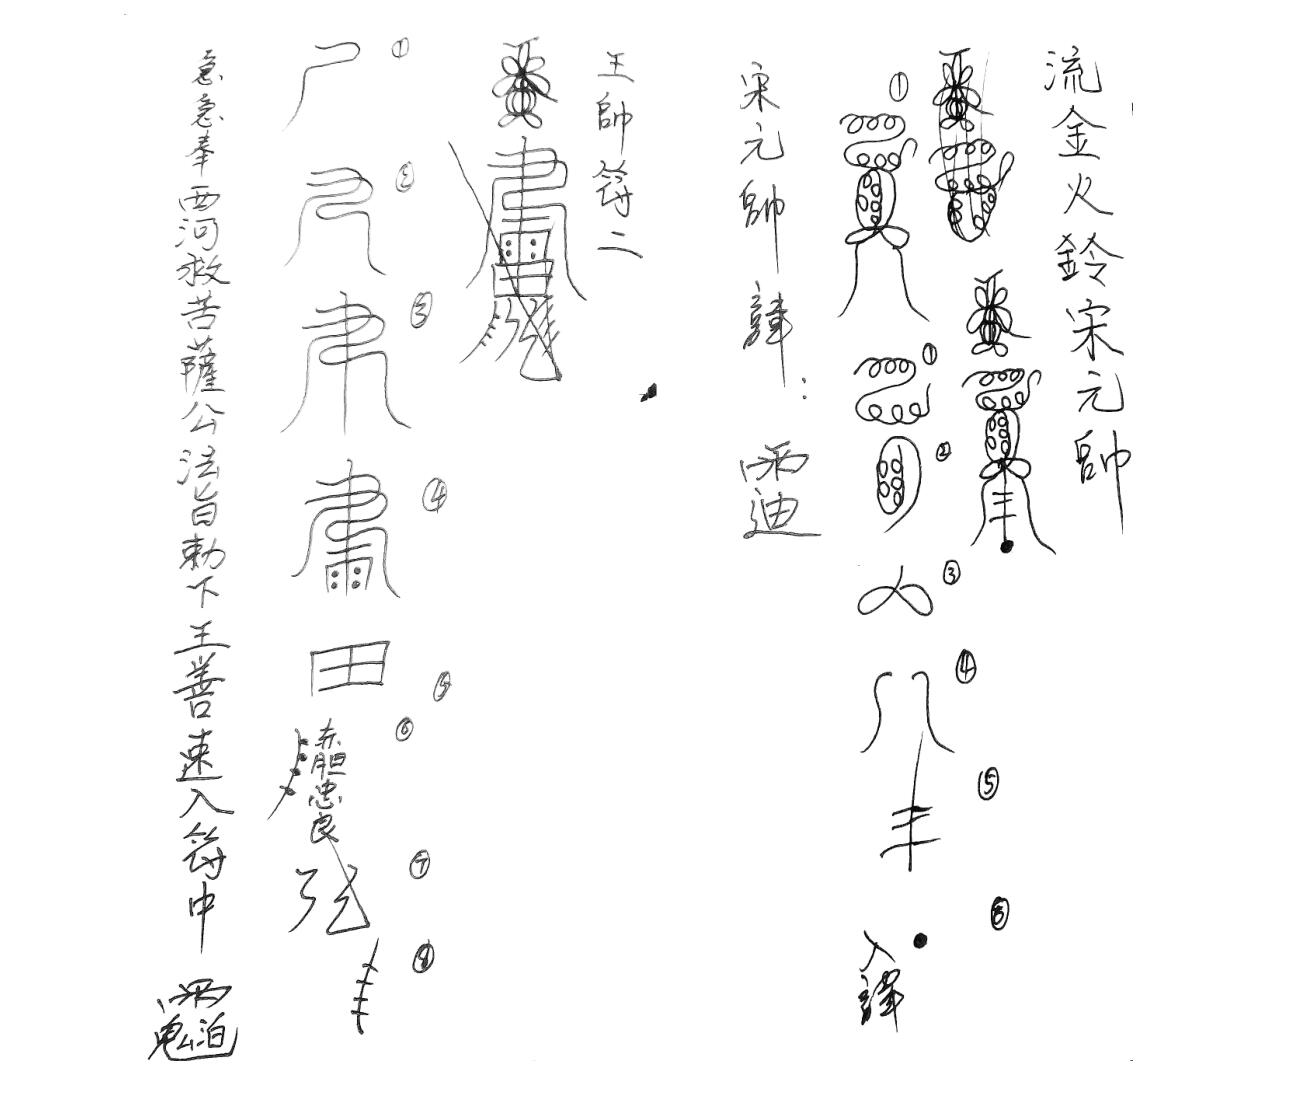 流金火鈴宋元帥
①
①
②
③
④
⑤
⑥
入諱
宋元帥諱：
王帥符二
①
②
③
④
⑤
⑥
赤胆忠良
⑦
⑧
急急奉西河救苦薩公法旨勅下王善速入符中